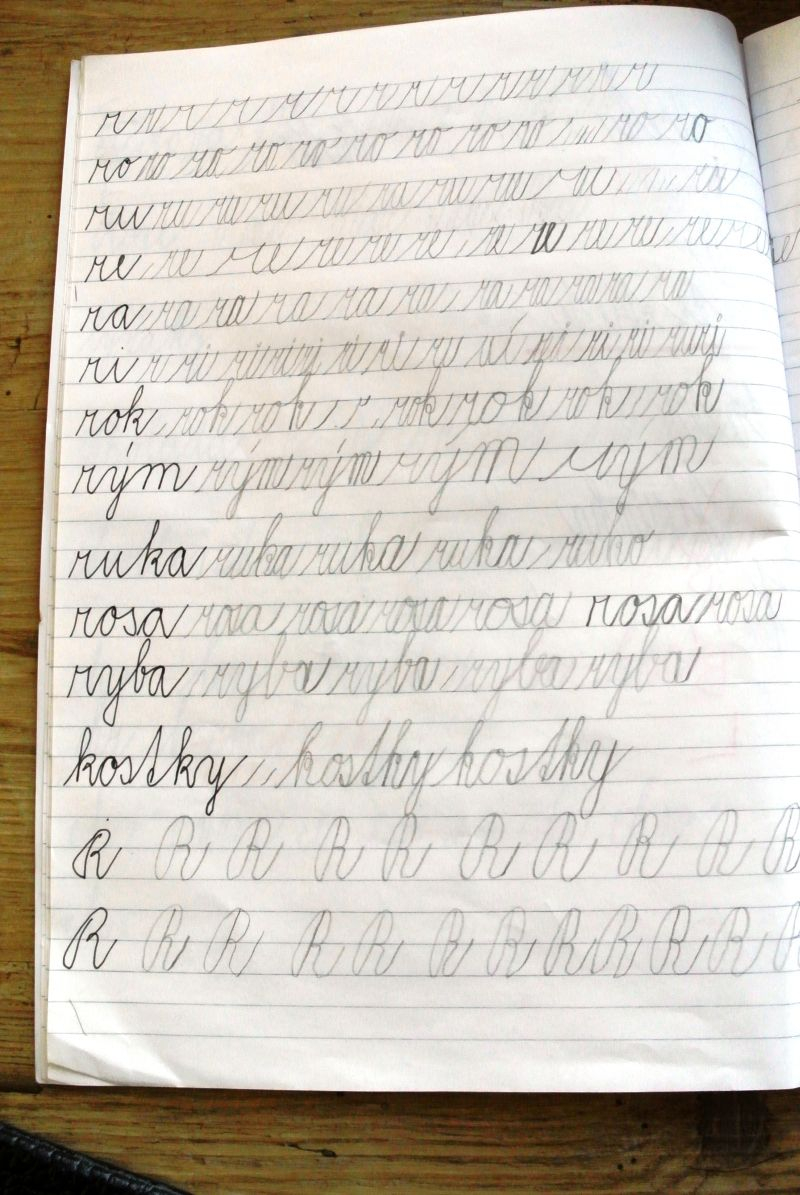 r r r r r r r r r r r r r r
ro ro ro ro ro ro ro ro ro ro ro ro
ru ru ru ru ru ru ru ru ru ru
re re re re re re re re re re re re re
ra ra ra ra ra ra ra ra ra ra ra
ri r ri ri ri ri ri ri ri ri ri ri
rok rok rok r rok rok rok rok
rým rým rým rým rým
ruka ruka ruka ruka ruko
rosa rosa rosa rosa rosa rosa rosa
ryba ryba ryba ryba ryba
kostky kostky kostky
R R R R R R R R R R
R R R R R R R R R R R R